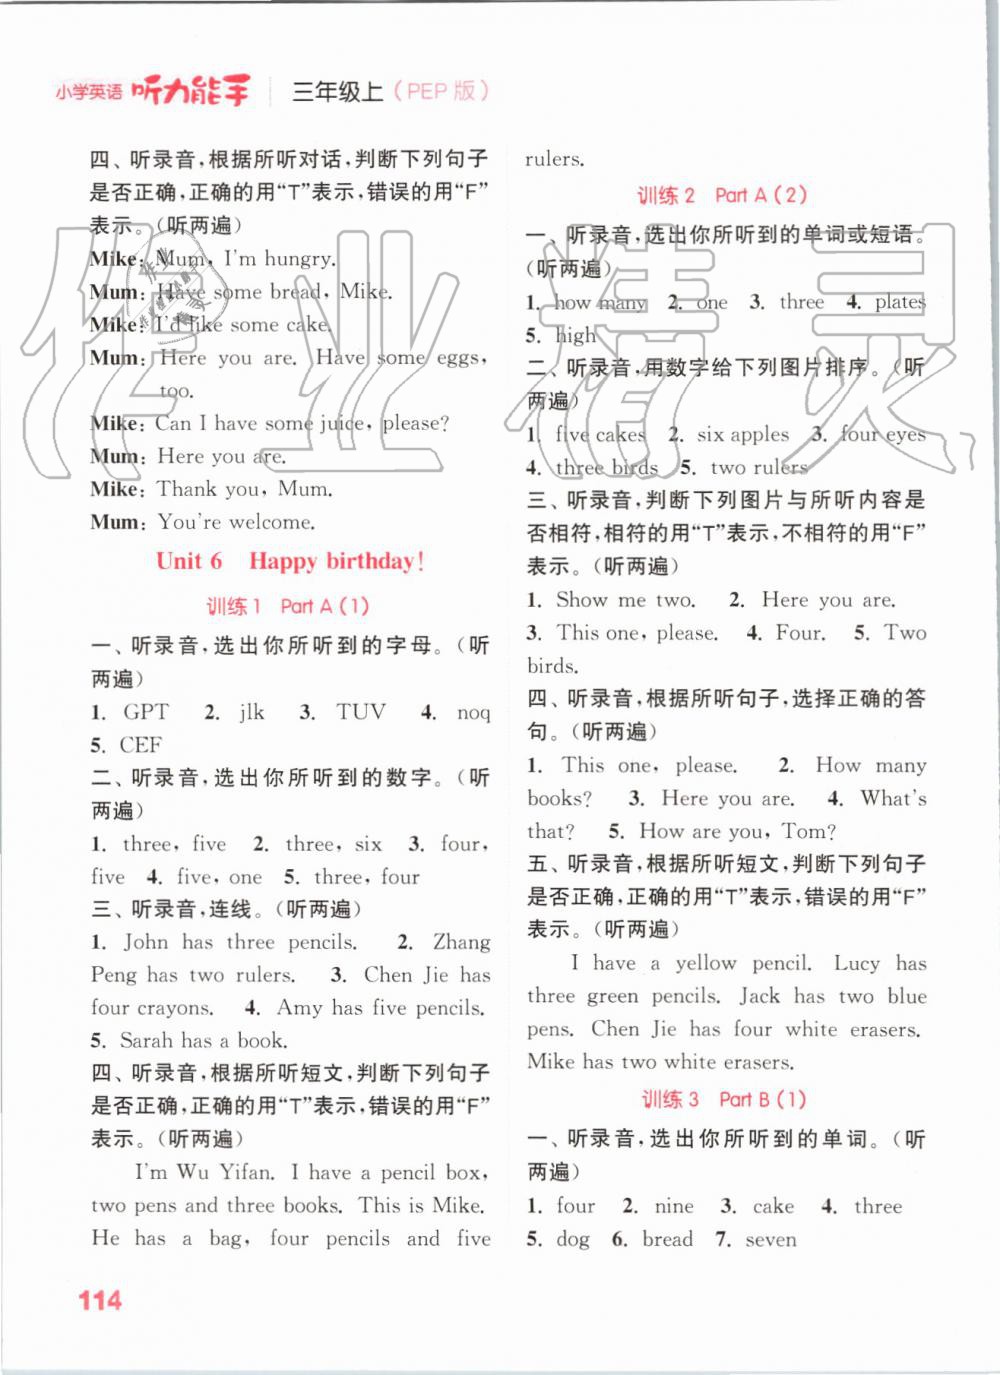 小学英语 听力能手 三年级上（PEP 版）
四、听录音，根据所听对话，判断下列句子
是否正确，正确的用“T”表示，错误的用“F”
表示。（听两遍）
Mike: Mum, I'm hungry.
Mum: Have some bread, Mike.
Mike: I'd like some cake.
Mum: Here you are. Have some eggs,
too.
Mike: Can I have some juice, please?
Mum: Here you are.
Mike: Thank you, Mum.
Mum: You're welcome.
Unit 6 Happy birthday!
训练1 Part A (1)
一、听录音，选出你所听到的字母。（听
两遍）
1. GPT 2. jlk 3. TUV 4. noq
5. CEF
二、听录音，选出你所听到的数字。（听
两遍）
1. three, five 2. three, six 3. four,
five 4. five, one 5. three, four
三、听录音，连线。（听两遍）
1. John has three pencils. 2. Zhang
Peng has two rulers. 3. Chen Jie has
four crayons. 4. Amy has five pencils.
5. Sarah has a book.
四、听录音，根据所听短文，判断下列句子
是否正确，正确的用“T”表示，错误的用“F”
表示。（听两遍）
I'm Wu Yifan. I have a pencil box,
two pens and three books. This is Mike.
He has a bag, four pencils and five
rulers.
训练2 Part A (2)
一、听录音，选出你所听到的单词或短语。
（听两遍）
1. how many 2. one 3. three 4. plates
5. high
二、听录音，用数字给下列图片排序。（听
两遍）
1. five cakes 2. six apples 3. four eyes
4. three birds 5. two rulers
三、听录音，判断下列图片与所听内容是
否相符，相符的用“T”表示，不相符的用“F”
表示。（听两遍）
1. Show me two. 2. Here you are.
3. This one, please. 4. Four. 5. Two
birds.
四、听录音，根据所听句子，选择正确的答
句。（听两遍）
1. This one, please. 2. How many
books? 3. Here you are. 4. What's
that? 5. How are you, Tom?
五、听录音，根据所听短文，判断下列句子
是否正确，正确的用“T”表示，错误的用“F”
表示。（听两遍）
I have a yellow pencil. Lucy has
three green pencils. Jack has two blue
pens. Chen Jie has four white erasers.
Mike has two white erasers.
训练3 Part B (1)
一、听录音，选出你所听到的单词。（听
两遍）
1. four 2. nine 3. cake 4. three
5. dog 6. bread 7. seven
114
作业精灵